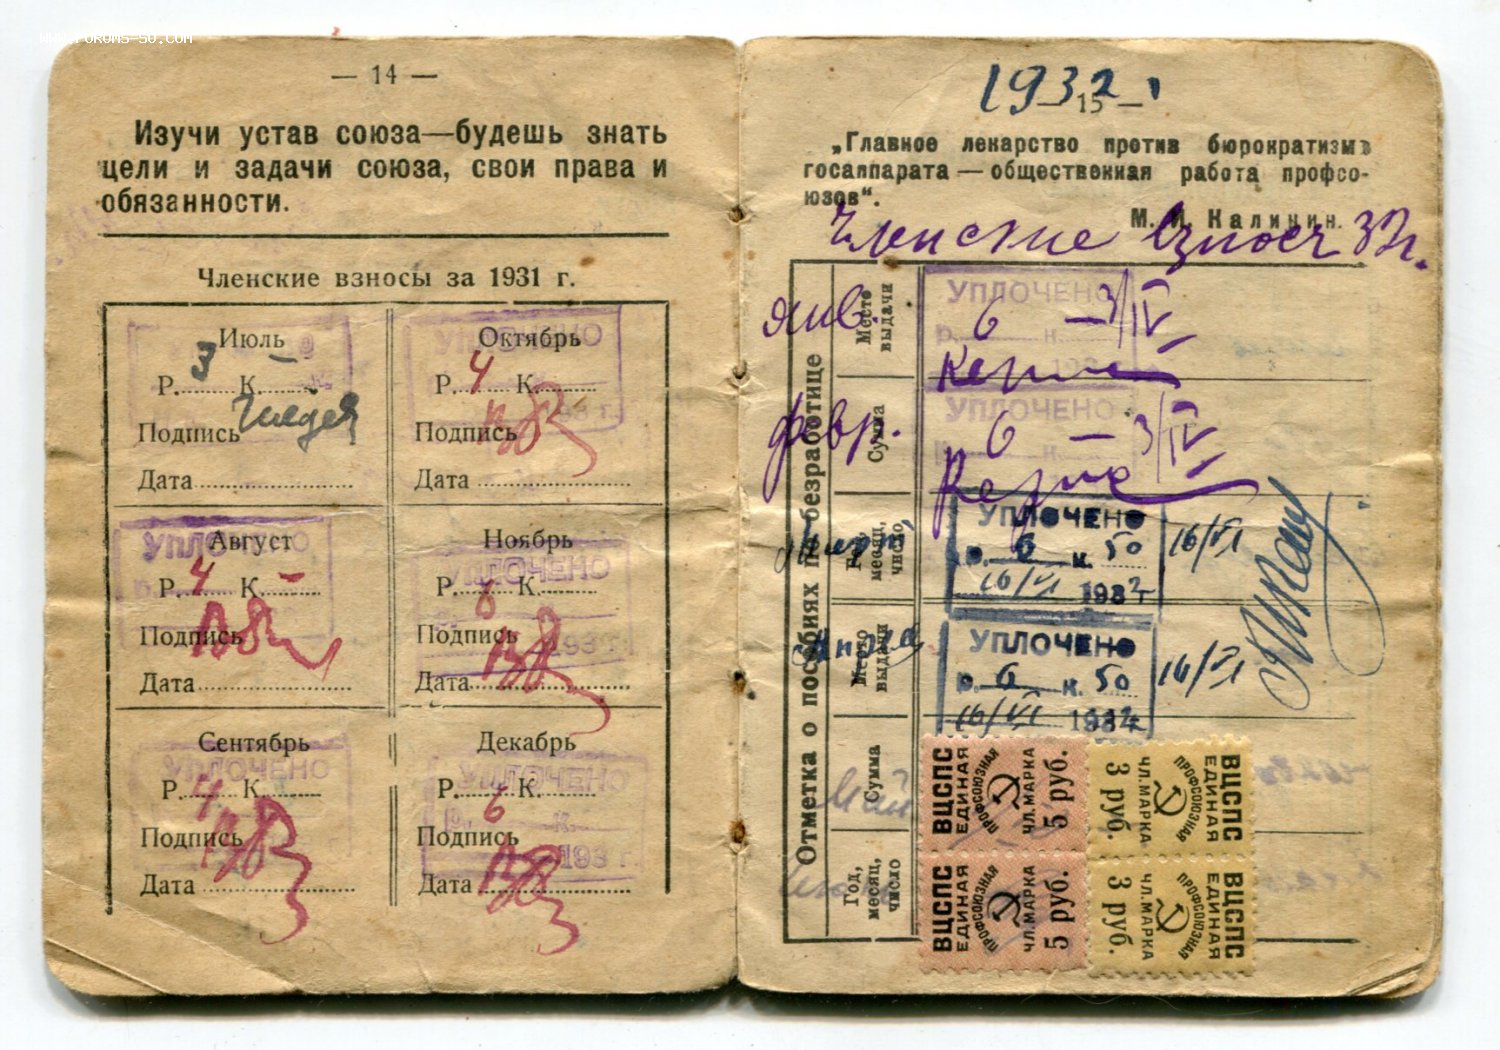 WWW.FORUMS-SU.COM
— 14 —
Изучи устав союза—будешь знать
цели и задачи союза, свои права и
обязанности.
Членские взносы за 1931 г.
Июль
Р. 3 К. —
Подпись
Дата
Октябрь
УПЛОЧЕНО
Р. 4 К.
Подпись
Дата
Август
УПЛОЧЕНО
Р. 4 К. —
Подпись
Дата
Ноябрь
УПЛОЧЕНО
Р. 6 К.
Подпись
193
Дата
Сентябрь
УПЛОЧЕНО
Р. 4 К.
Подпись
Дата
Декабрь
УПЛОЧЕНО
Р. 6 К.
Подпись
193 г.
Дата
1932 г
— 15 —
„Главное лекарство против бюрократизма
госаппарата — общественная работа профсо-
юзов“.
М. И. Калинин.
Членские взносы 32 г.
Отметка о пособиях по безработице
Место выдачи
Сумма
Год, месяц, число
Место выдачи
Сумма
Год, месяц, число
янв.
УПЛОЧЕНО
6 — 3/IV
февр.
УПЛОЧЕНО
6 — 3/IV
март
УПЛОЧЕНО
Р. 6 К. 50 16/VI
16/VI 1932 г
УПЛОЧЕНО
Р. 6 К. 50 16/VI
16/VI 1932 г
Май
ВЦСПС
ЕДИНАЯ
ПРОФСОЮЗНАЯ
ЧЛ. МАРКА
5 руб.
ВЦСПС
ЕДИНАЯ
ПРОФСОЮЗНАЯ
ЧЛ. МАРКА
3 руб.
ВЦСПС
ЕДИНАЯ
ПРОФСОЮЗНАЯ
ЧЛ. МАРКА
5 руб.
ВЦСПС
ЕДИНАЯ
ПРОФСОЮЗНАЯ
ЧЛ. МАРКА
3 руб.